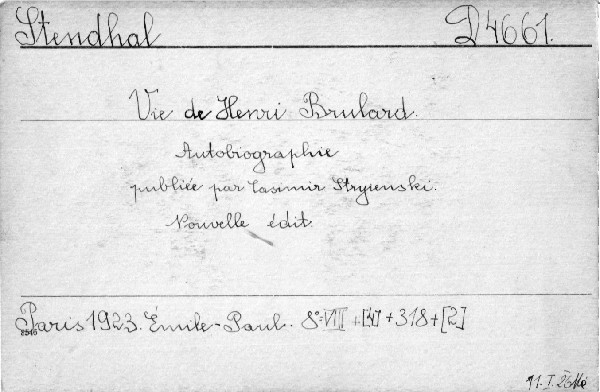 Stendhal D4661.
Vie de Henri Brulard.
Autobiographie
publiée par Casimir Stryienski.
Nouvelle édit.
Paris 1923. Émile-Paul. 8° VIII + [4] + 318 + [2]
2546
11. I. 26